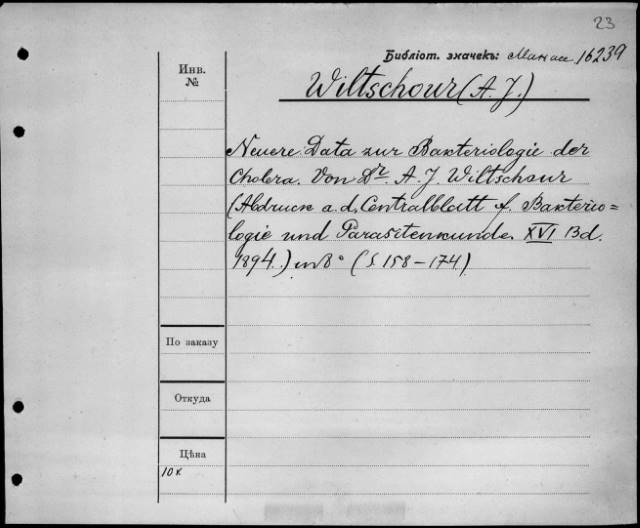 23
Библіот. значекъ: Макас 16239
Инв.
№
Wiltschour (A. J.)
Neuere Data zur Bakteriologie der
Cholera. Von Dr. A. J. Wiltschour
(Abdruck a. d. Centralblatt f. Bakterio=
logie und Parasitenkunde XVI Bd.
1894.) in 8° (S 158–174)
По заказу
Откуда
Цѣна
10 к